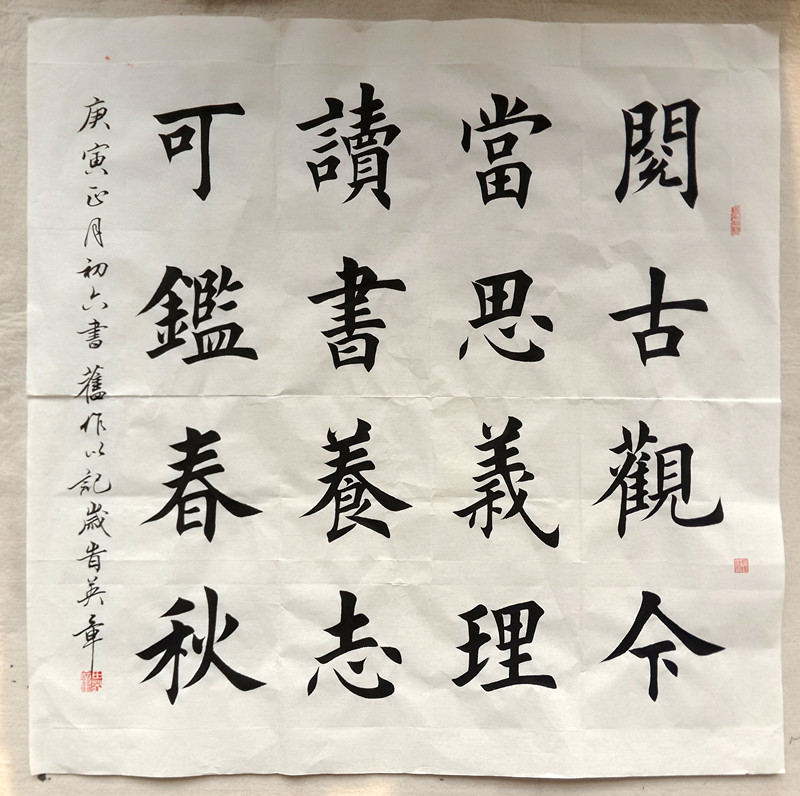 閱古觀今
當思義理
讀書養志
可鑑春秋
庚寅正月初六書舊作以記歲首英章